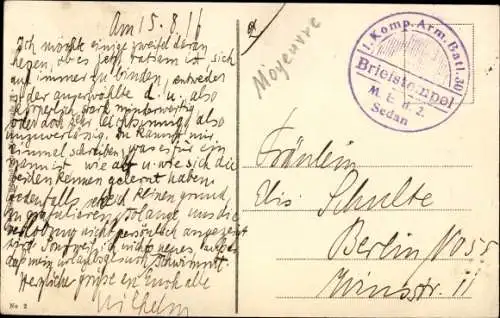 Am 15.8.16
Ich möchte einige zweifel daran
hegen, ob es jetzt ratsam ist sich
auf immer zu binden, entweder
der angewählte d. u. also
körperlich stark minderwertig
oder doch sehr
unzuverlässig. Du kannst mir
einmal schreiben, was es für ein
mann ist wie alt u. wie sich die
beiden kennen gelernt haben.
jedenfalls kleinen grund
gratulieren solange uns die
verlobung nicht persönlich angezeigt
wird. Sonst weiß ich nichts neues
daß mein urlaubsgesuch schwimmt.
Herzliche grüße an Euch alle
Wilhelm
No 2
Moyeuvre
1. Komp. Arm. Batl. 30
Briefstempel
M. E. d. 2.
Sedan
Fräulein
Elis Schulte
Berlin No 55
Winsstr. 11